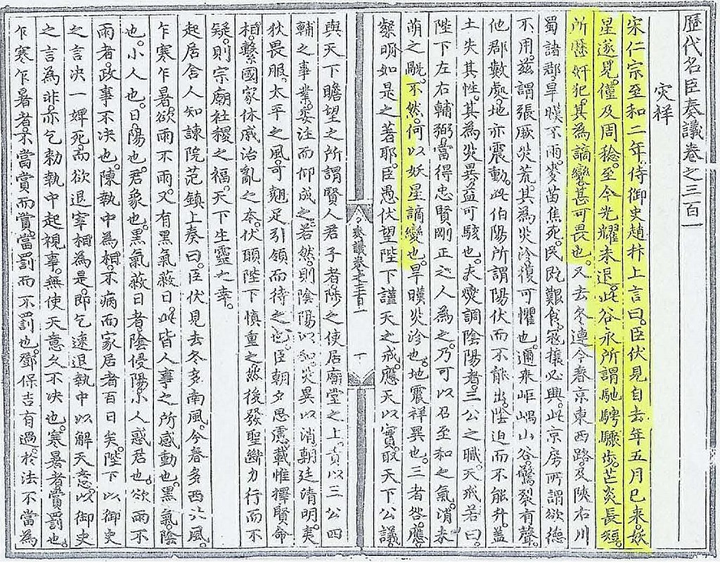 歷代名臣奏議卷之三百一
灾祥
宋仁宗至和二年侍御史趙抃上言曰臣伏見自去年五月已來妖
星遂見僅及周稔至今光耀未退此谷永所謂馳騁驟步芒炎長短
所歷奸犯其為謫變甚可畏也又去冬連今春京東西路及陝右川
蜀諸郡旱暵不雨麥苗焦死民艱食寇攘必興此京房所謂欲德
不用茲謂張厥災荒其為災沴復可懼也邇來岷嵎山谷驚裂有聲
他郡數處地亦震動此伯陽所謂陽伏而不能出陰迫而不能升蓋
土失其性其為災異益可駭也夫燮調陰陽者三公之職天戒若曰
陛下左右輔弼當得忠賢剛正之人為之乃可以召至和之氣消未
萌之眚不然何以妖星謫變也旱暵災沴也地震祥異也三者咎應
昭如是之著耶臣愚伏望陛下謹天之戒應天以實取天下公議
與天下瞻望之所謂賢人君子者陟之使居廟堂之上責以三公四
輔之事業委注而仰成之若然則陰陽以和災異以消朝廷清明夷
狄畏服太平之風可翹足引領而待之也臣朝夕思慮載惟擇賢命
相繫國家休戚治亂之本伏願陛下慎重之然後發聖斷力行而不
疑則宗廟社稷之福天下生靈之幸
起居舍人知諫院范鎮上奏曰臣伏見去冬多南風今春多西北風
乍寒乍暑欲雨不雨又有黑氣蔽日此皆人事之所感動也黑氣陰
也小人也日陽也君象也黑氣蔽日者陰侵陽小人惑君也欲雨不
雨者政事不决也陳執中為相不病而家居者百日矣陛下以御史
之言决一婢死而欲退宰相為是即乞速退執中以解天意以御史
之言為非亦乞勑執中起視事無使天意久不决也寒暑者賞罰也
乍寒乍暑者不當賞而賞當罰而不罰也鄧保吉有過於法不當為
奏議卷之三百一